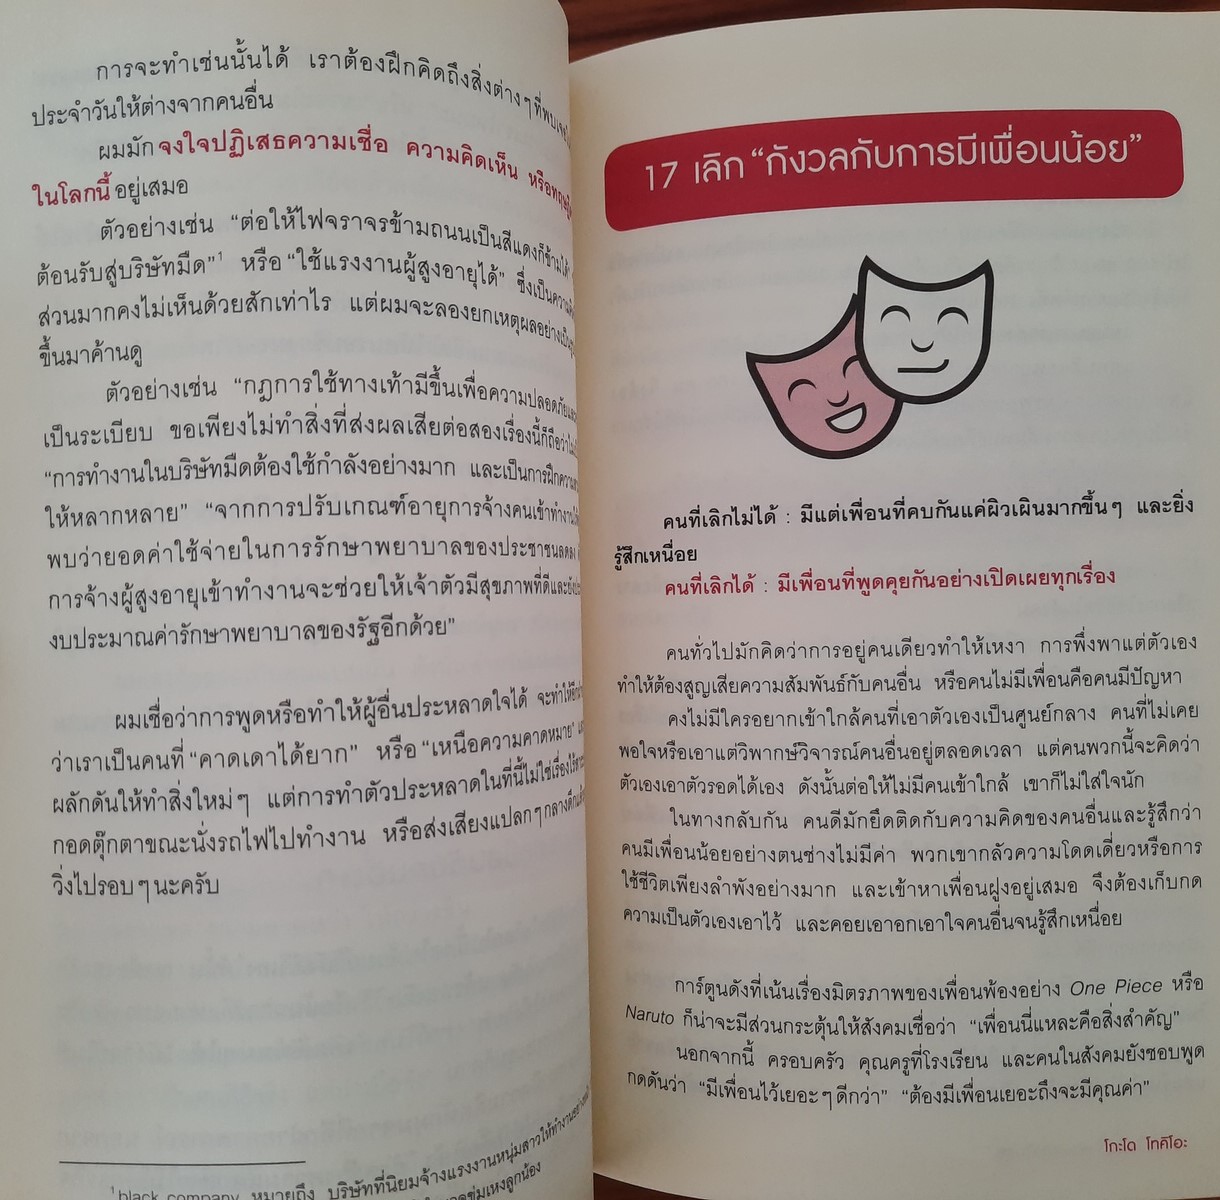 การจะทำเช่นนั้นได้ เราต้องฝึกคิดถึงสิ่งต่างๆที่พบเจอ
ประจำวันให้ต่างจากคนอื่น
ผมมักจงใจปฏิเสธความเชื่อ ความคิดเห็น หรือทฤษฎี
ในโลกนี้อยู่เสมอ
ตัวอย่างเช่น “ต่อให้ไฟจราจรข้ามถนนเป็นสีแดงก็ข้ามได้”
ต้อนรับสู่บริษัทมืด”¹ หรือ “ใช้แรงงานผู้สูงอายุได้” ซึ่งเป็น
ส่วนมากคงไม่เห็นด้วยสักเท่าไร แต่ผมจะลองยกเหตุผลอย่าง
ขึ้นมาค้านดู
ตัวอย่างเช่น “กฎการใช้ทางเท้ามีขึ้นเพื่อความปลอดภัย
เป็นระเบียบ ขอเพียงไม่ทำสิ่งที่ส่งผลเสียต่อสองเรื่องนี้ก็ถือว่า
“การทำงานในบริษัทมืดต้องใช้กำลังอย่างมาก และเป็นการฝึก
ให้หลากหลาย” “จากการปรับเกณฑ์อายุการจ้างคนเข้าทำงาน
พบว่ายอดค่าใช้จ่ายในการรักษาพยาบาลของประชาชนลดลง
การจ้างผู้สูงอายุเข้าทำงานจะช่วยให้เจ้าตัวมีสุขภาพที่ดีและ
งบประมาณค่ารักษาพยาบาลของรัฐอีกด้วย”
ผมเชื่อว่าการพูดหรือทำให้ผู้อื่นประหลาดใจได้ จะทำให้
ว่าเราเป็นคนที่ “คาดเดาได้ยาก” หรือ “เหนือความคาดหมาย”
ผลักดันให้ทำสิ่งใหม่ๆ แต่การทำตัวประหลาดในที่นี้ไม่ใช่เรื่อง
กอดตุ๊กตาขณะนั่งรถไฟไปทำงาน หรือส่งเสียงแปลกๆกลางดึก
วิ่งไปรอบๆนะครับ
¹ black company หมายถึง บริษัทที่นิยมจ้างแรงงานหนุ่มสาวให้ทำงาน
ข่มเหงลูกน้อง
17 เลิก “กังวลกับการมีเพื่อนน้อย”
คนที่เลิกไม่ได้ : มีแต่เพื่อนที่คบกันแค่ผิวเผินมากขึ้นๆ และยิ่ง
รู้สึกเหนื่อย
คนที่เลิกได้ : มีเพื่อนที่พูดคุยกันอย่างเปิดเผยทุกเรื่อง
คนทั่วไปมักคิดว่าการอยู่คนเดียวทำให้เหงา การพึ่งพาแต่ตัวเอง
ทำให้ต้องสูญเสียความสัมพันธ์กับคนอื่น หรือคนไม่มีเพื่อนคือคนมีปัญหา
คงไม่มีใครอยากเข้าใกล้คนที่เอาตัวเองเป็นศูนย์กลาง คนที่ไม่เคย
พอใจหรือเอาแต่วิพากษ์วิจารณ์คนอื่นอยู่ตลอดเวลา แต่คนพวกนี้จะคิดว่า
ตัวเองเอาตัวรอดได้เอง ดังนั้นต่อให้ไม่มีคนเข้าใกล้ เขาก็ไม่ใส่ใจนัก
ในทางกลับกัน คนดีมักยึดติดกับความคิดของคนอื่นและรู้สึกว่า
คนมีเพื่อนน้อยอย่างตนช่างไม่มีค่า พวกเขากลัวความโดดเดี่ยวหรือการ
ใช้ชีวิตเพียงลำพังอย่างมาก และเข้าหาเพื่อนฝูงอยู่เสมอ จึงต้องเก็บกด
ความเป็นตัวเองเอาไว้ และคอยเอาอกเอาใจคนอื่นจนรู้สึกเหนื่อย
การ์ตูนดังที่เน้นเรื่องมิตรภาพของเพื่อนพ้องอย่าง One Piece หรือ
Naruto ก็น่าจะมีส่วนกระตุ้นให้สังคมเชื่อว่า “เพื่อนนี่แหละคือสิ่งสำคัญ”
นอกจากนี้ ครอบครัว คุณครูที่โรงเรียน และคนในสังคมยังชอบพูด
กดดันว่า “มีเพื่อนไว้เยอะๆดีกว่า” “ต้องมีเพื่อนเยอะถึงจะมีคุณค่า”
โกะโด โทคิโอะ